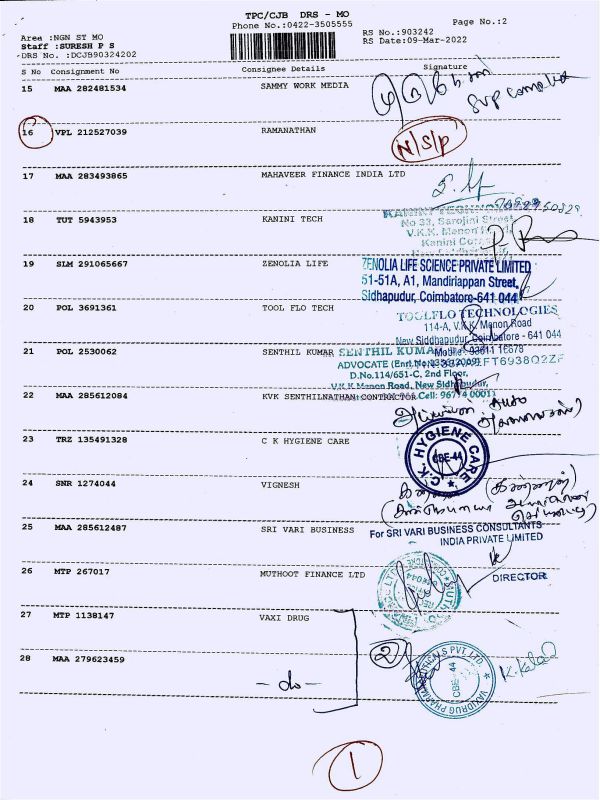 TPC/CJB DRS - MO
Phone No.:0422-3505555
Page No.:2
Area :NGN ST MO
Staff :SURESH P S
DRS No. :DCJB90324202
RS No.:903242
RS Date:09-Mar-2022
S No Consignment No Consignee Details Signature
15 MAA 282481534 SAMMY WORK MEDIA
16 VPL 212527039 RAMANATHAN
N/S/P
17 MAA 283493865 MAHAVEER FINANCE INDIA LTD
18 TUT 5943953 KANINI TECH
No 33, Sarojini Street
V.K.K. Menon Road,
19 SLM 291065667 ZENOLIA LIFE
ZENOLIA LIFE SCIENCE PRIVATE LIMITED
51-51A, A1, Mandiriappan Street,
Sidhapudur, Coimbatore-641 044
20 POL 3691361 TOOL FLO TECH
TOOLFLO TECHNOLOGIES
114-A, V.K.K. Menon Road
New Siddhapudur, Coimbatore - 641 044
21 POL 2530062 SENTHIL KUMAR
SENTHIL KUMAR
ADVOCATE
D.No.114/651-C, 2nd Floor,
V.K.K Menon Road, New Sidhapudur,
22 MAA 285612084 KVK SENTHILNATHAN CONTRACTOR
23 TRZ 135491328 C K HYGIENE CARE
C.K. HYGIENE CARE
CBE-44
24 SNR 1274044 VIGNESH
25 MAA 285612487 SRI VARI BUSINESS
For SRI VARI BUSINESS CONSULTANTS
INDIA PRIVATE LIMITED
DIRECTOR
26 MTP 267017 MUTHOOT FINANCE LTD
27 MTP 1138147 VAXI DRUG
28 MAA 279623459
- do -
2
VAXIDRUG PHARMACEUTICALS PVT. LTD.
CBE-44
1